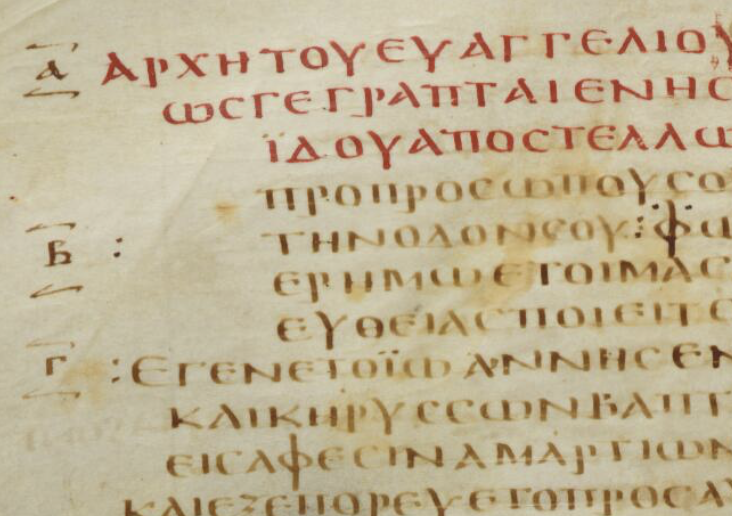 Α ΑΡΧΗΤΟΥΕΥΑΓΓΕΛΙΟΥ
ΩϹΓΕΓΡΑΠΤΑΙΕΝΗϹ
ΪΔΟΥΑΠΟϹΤΕΛΛΩ
ΠΡΟΠΡΟϹΩΠΟΥϹΟ
Β : ΤΗΝΟΔΟΝϹΟΥ:ΦΩ
ΕΡΗΜΩΕΤΟΙΜΑϹ
ΕΥΘΕΙΑϹΠΟΙΕΙΤΕ
Γ :ΕΓΕΝΕΤΟΪΩΑΝΝΗϹΕΝ
ΚΑΙΚΗΡΥϹϹΩΝΒΑΠΤ
ΕΙϹΑΦΕϹΙΝΑΜΑΡΤΙΩΝ
ΚΑΙΕΞΕΠΟΡΕΥΕΤΟΠΡΟϹΑΥ